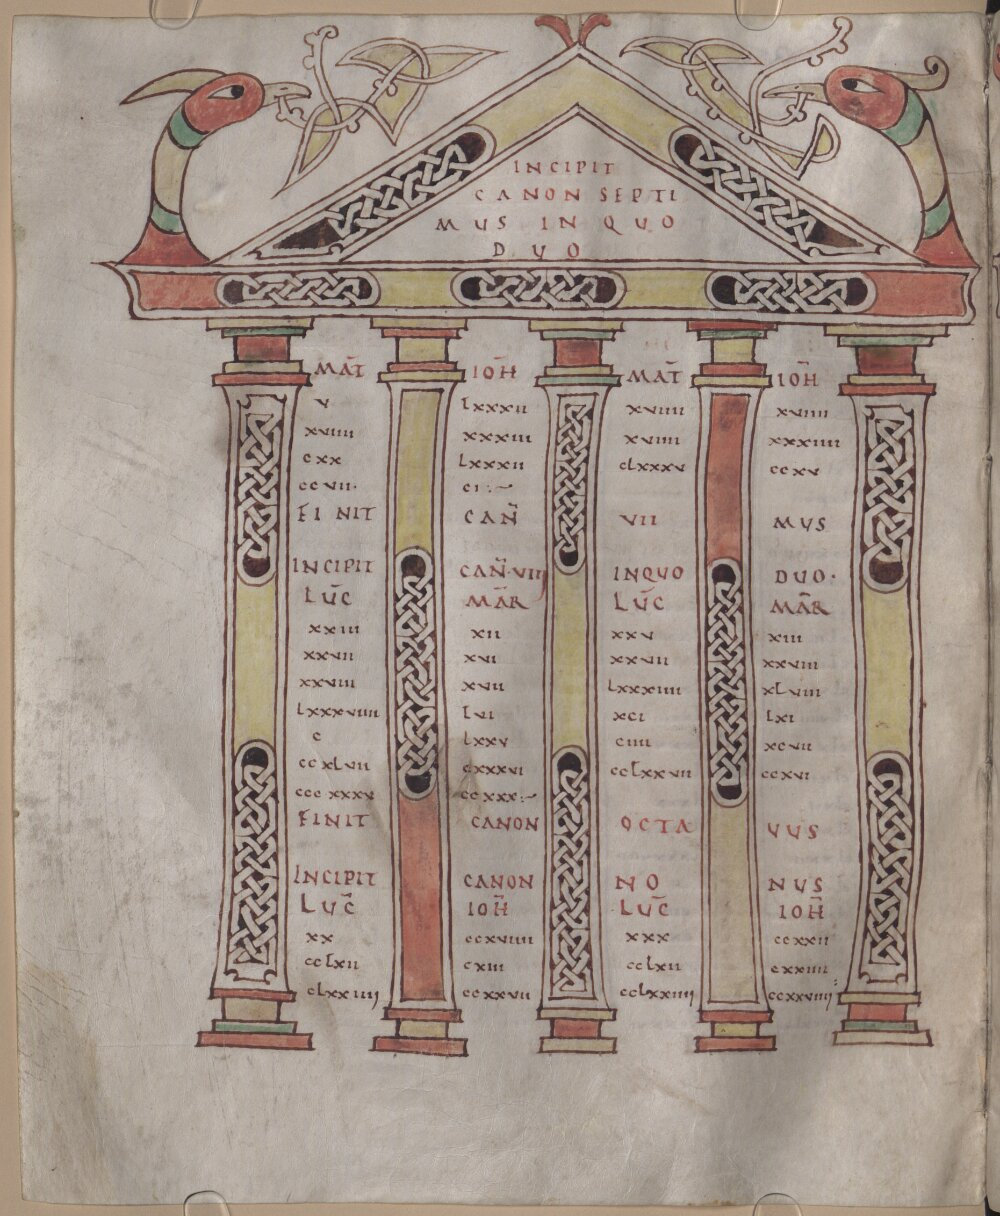 INCIPIT
CANON SEPTI
MUS IN QUO
DUO
MAT̄ IOH̄ MAT̄ IOH̄
v lxxxii xviiii xviiii
xviiii xxxiii xviiii xxxiiii
cxx lxxxii clxxxv ccxv
ccvii· ci
FINIT CAN̄ VII MUS
INCIPIT CAN̄·VIII INQUO DUO·
LUC̄ MAR̄ LUC̄ MAR̄
xxiii xii xxv xiii
xxvii xvi xxvii xxviii
xxviii xvii lxxxiiii xlviii
lxxxviiii lvi xci lxi
c lxxv ciiii xcvii
ccxlvii cxxxvi cclxxvii ccxvi
cccxxxx ccxxx
FINIT CANON OCTA VUS
INCIPIT CANON NO NUS
LUC̄ IOH̄ LUC̄ IOH̄
xx ccxviiii xxx ccxxii
cclxii cxiii cclxii cxxiiii
clxxiiii ccxxvii cclxxiiii ccxxviiii